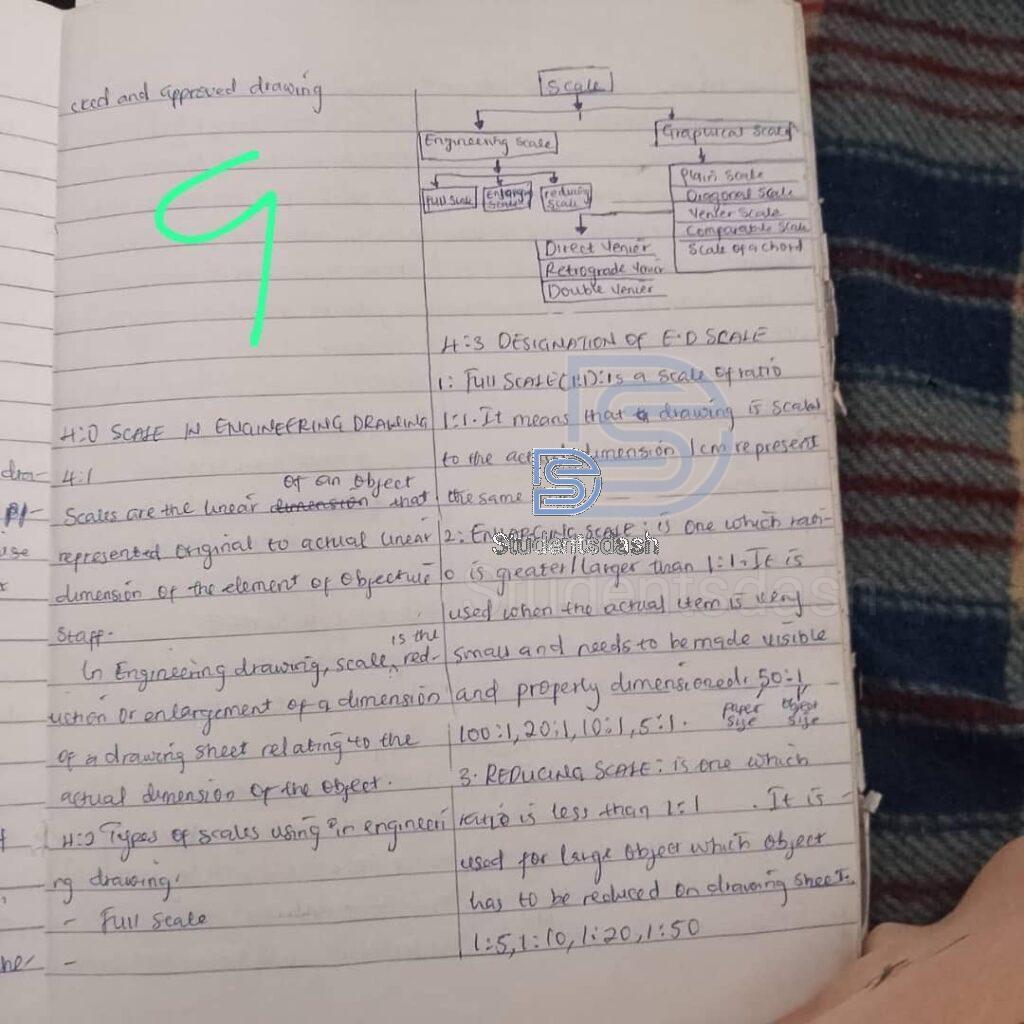 cted and approved drawing
4:0 SCALE IN ENGINEERING DRAWING
4:1
of an object
Scales are the linear dimension that
represented original to actual linear
dimension of the element of objective
staff.
is the
In Engineering drawing, scale, red-
uction or enlargement of a dimension
of a drawing sheet relating to the
actual dimension of the object.
4:2 Types of scales using in engineeri
ng drawing.
- Full scale
-
Scale
Engineering scale
Graphical scale
Full scale
Enlarging scale
reducing scale
Plain scale
Diagonal scale
Venier scale
Comparable scale
Scale of a chord
Direct venier
Retrograde venier
Double venier
4:3 DESIGNATION OF E.D SCALE
1: FULL SCALE (1:1): is a scale of ratio
1:1. It means that drawing is scaled
to the actual dimension 1cm represent
the same
2: ENLARGING SCALE: is one which rati-
o is greater/larger than 1:1. It is
used when the actual item is very
small and needs to be made visible
and properly dimensioned. 50:1
paper size
object size
100:1, 20:1, 10:1, 5:1.
3. REDUCING SCALE: is one which
ratio is less than 1:1. It is
used for large object which object
has to be reduced on drawing sheet.
1:5, 1:10, 1:20, 1:50
dra-
use
9
Studentsdash
Studentsdash